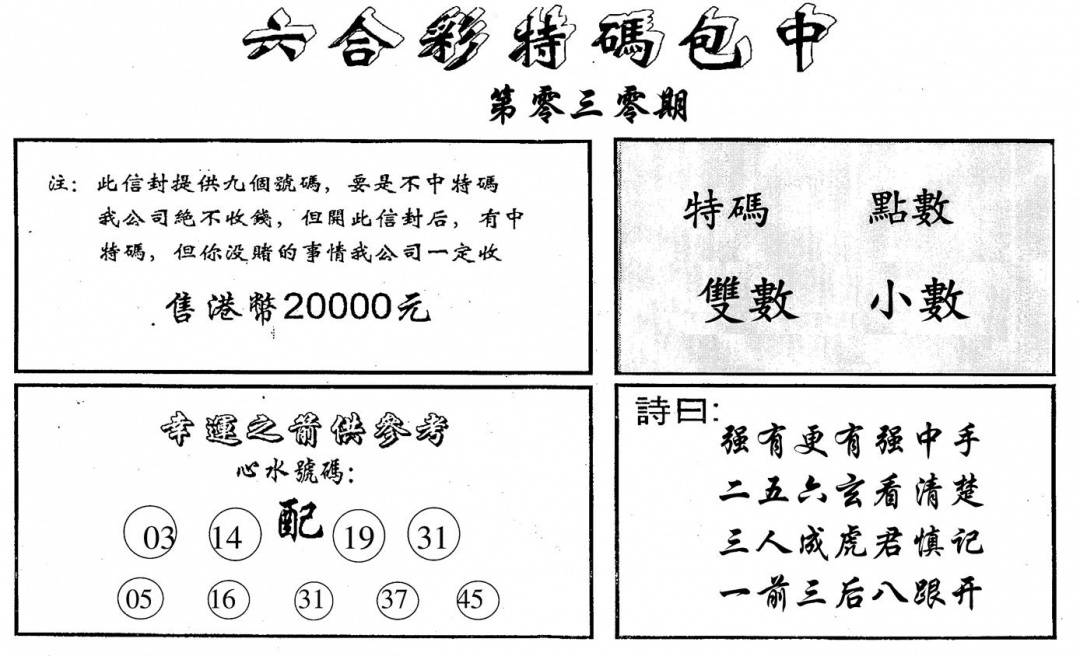 六合彩特碼包中
第零三零期
注：此信封提供九個號碼，要是不中特碼
我公司絕不收錢，但開此信封后，有中
特碼，但你没賭的事情我公司一定收
售港幣20000元
特碼 點數
雙數 小數
幸運之箭供參考
心水號碼：
03 14 配 19 31
05 16 31 37 45
詩曰：
强有更有强中手
二五六玄看清楚
三人成虎君慎记
一前三后八跟开